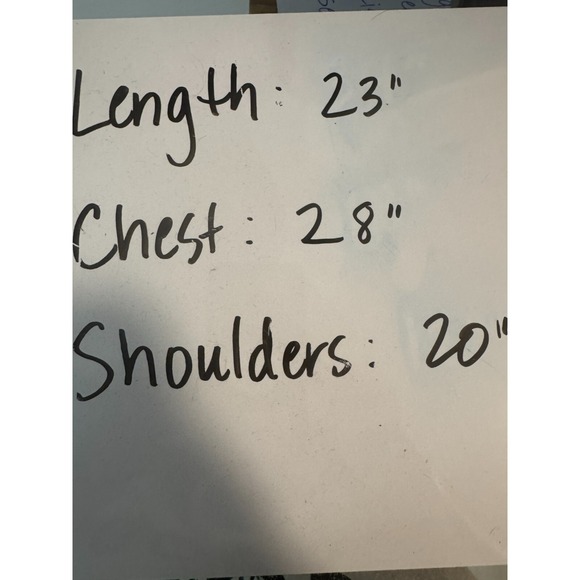 Length: 23"
Chest: 28"
Shoulders: 20"